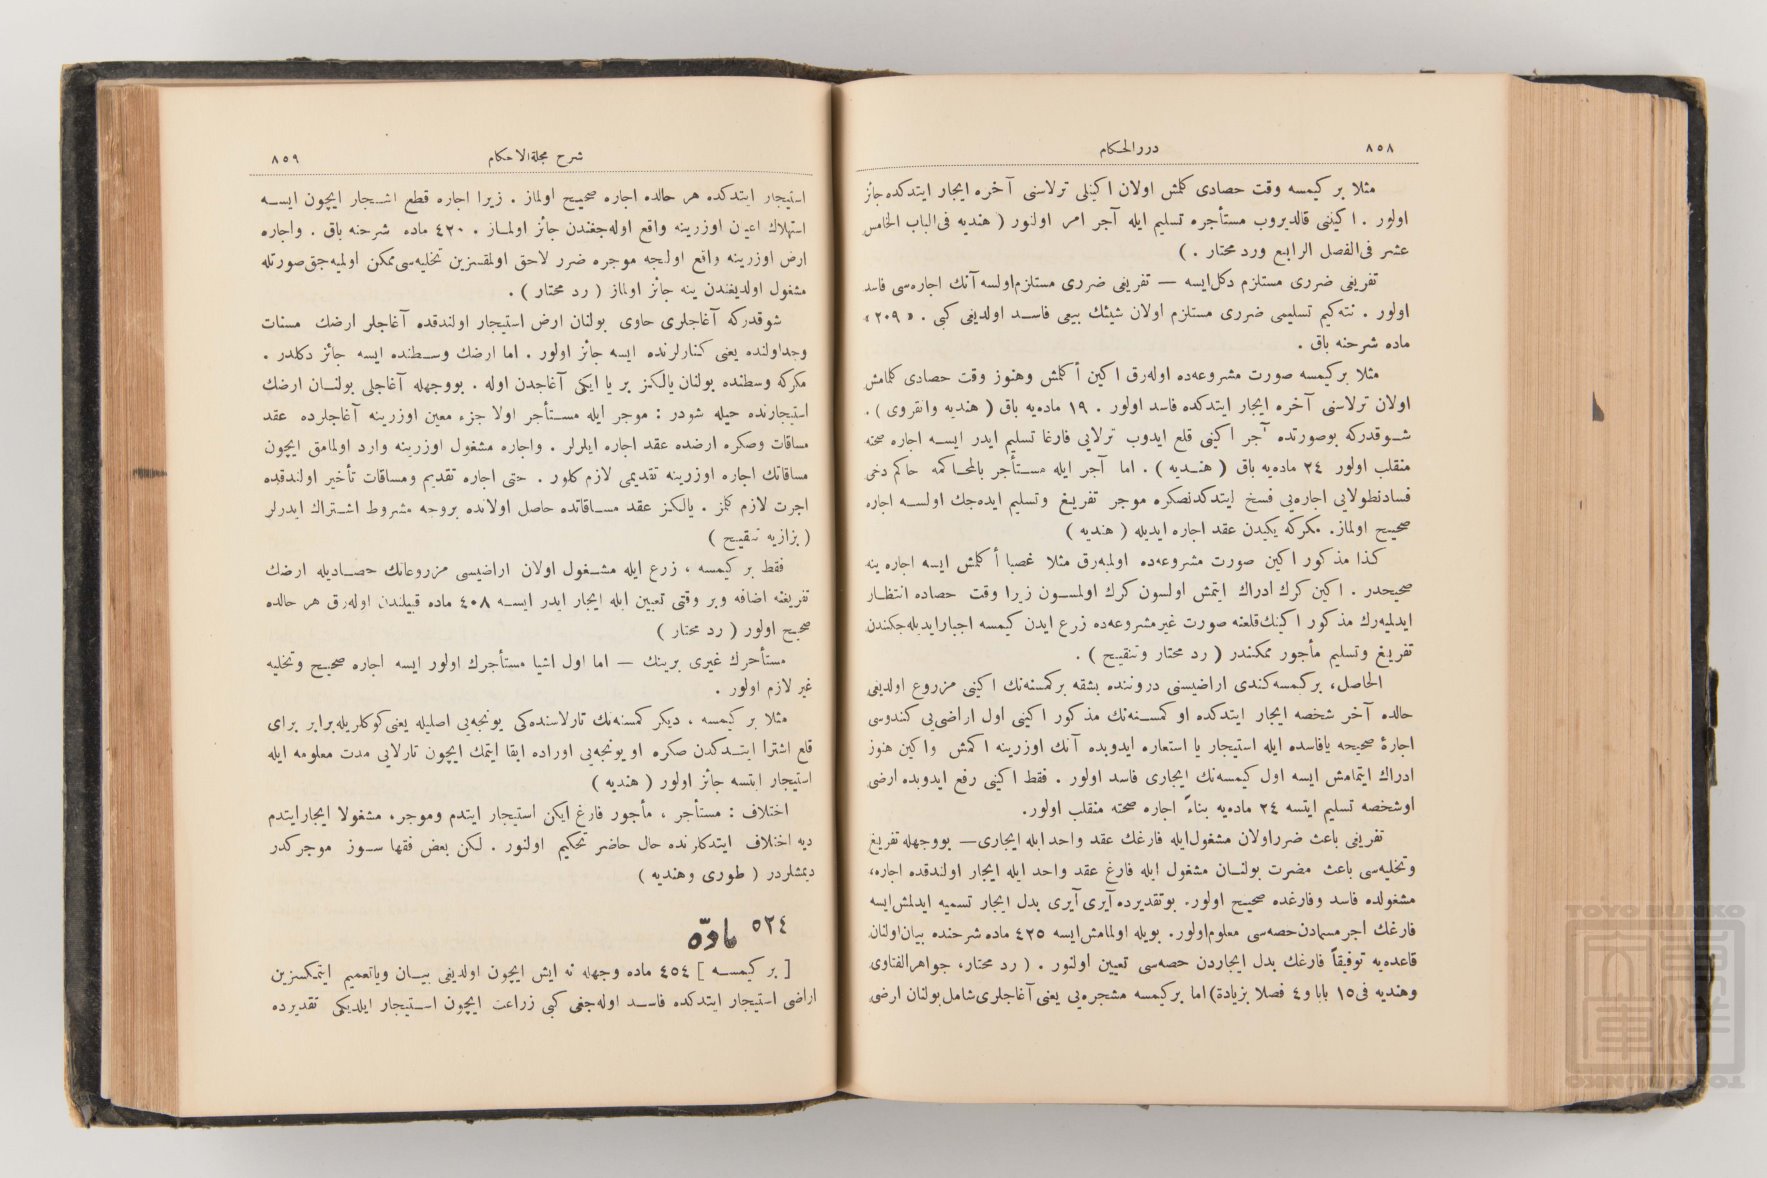 ٨٥٨
دررالحكام
مثلا بر كيمسه وقت حصادى كلمش اولان اكينلى ترلاسنى آخره ايجار ايتدكده جائز
اولور . اكينى قالديروب مستأجره تسليم ايله آجر امر اولنور ( هنديه فى الباب الخامس
عشر فى الفصل الرابع ورد محتار . )
تفريغى ضررى مستلزم دكل ايسه — تفريغى ضررى مستلزم اولسه آنك اجاره‌سى فاسد
اولور . نته‌كيم تسليمى ضررى مستلزم اولان شيئك بيعى فاسد اولديغى كبى . « ٢٠٩ »
ماده شرحنه باق .
مثلا بركيمسه صورت مشروعه‌ده اوله‌رق اكين أكمش وهنوز وقت حصادى كلمامش
اولان ترلاسنى آخره ايجار ايتدكده فاسد اولور . ١٩ ماده‌يه باق ( هنديه وانقروى ) .
شوقدركه بوصورتده آجر اكينى قلع ايدوب ترلايى فارغا تسليم ايدر ايسه اجاره صحته
منقلب اولور ٢٤ ماده‌يه باق ( هنديه ) . اما آجر ايله مستأجر بالمحاكمه حاكم دخى
فسادنطولايى اجاره‌يى فسخ ايتدكدنصكره موجر تفريغ وتسليم ايده‌جك اولسه اجاره
صحيح اولماز. مكركه يكيدن عقد اجاره ايديله ( هنديه )
كذا مذكور اكين صورت مشروعه‌ده اولميه‌رق مثلا غصبا أكلمش ايسه اجاره ينه
صحيحدر . اكين كرك ادراك ايتمش اولسون كرك اولمسون زيرا وقت حصاده انتظار
ايدلميه‌رك مذكور اكينك قلعنه صورت غيرمشروعه‌ده زرع ايدن كيمسه اجبار ايديله‌جكندن
تفريغ وتسليم مأجور ممكندر ( رد محتار وتنقيح ) .
الحاصل، بركيمسه كندى اراضيسنى دروننده بشقه بركمسنه‌نك اكينى مزروع اولديغى
حالده آخر شخصه ايجار ايتدكده او كمسنه‌نك مذكور اكينى اول اراضى‌يى كندوسى
اجارهٔ صحيحه يافاسده ايله استيجار يا استعاره ايدوبده آنك اوزرينه اكمش واكين هنوز
ادراك ايتمامش ايسه اول كيمسه‌نك ايجارى فاسد اولور . فقط اكينى رفع ايدوبده ارضى
اوشخصه تسليم ايتسه ٢٤ ماده‌يه بناءً اجاره صحته منقلب اولور.
تفريغى باعث ضرراولان مشغول ايله فارغك عقد واحد ايله ايجارى — بووجهله تفريغ
وتخليه‌سى باعث مضرت بولنان مشغول ايله فارغ عقد واحد ايله ايجار اولندقده اجاره،
مشغولده فاسد وفارغده صحيح اولور. بوتقديرده آيرى آيرى بدل ايجار تسميه ايدلمش ايسه
فارغك اجر مسمادن حصه‌سى معلوم اولور. بويله اولمامش ايسه ٤٢٥ ماده شرحنده بيان اولنان
قاعده‌يه توفيقاً فارغك بدل ايجاردن حصه‌سى تعيين اولنور . ( رد محتار، جواهرالفتاوى
وهنديه فى ١٥ بابا و ٤ فصلا بزيادة) اما بركيمسه مشجره‌يى يعنى آغاجلرى شامل بولنان ارضى
شرح مجلةالاحكام
٨٥٩
استيجار ايتدكده هر حالده اجاره صحيح اولماز . زيرا اجاره قطع اشجار ايچون ايسه
استهلاك اعيان اوزرينه واقع اوله‌جغندن جائز اولماز . ٤٢٠ ماده شرحنه باق . واجاره
ارض اوزرينه واقع اولجه موجره ضرر لاحق اولمقسزين تخليه‌سى ممكن اولميه‌جق صورتله
مشغول اولديغندن ينه جائز اولماز ( رد محتار ) .
شوقدركه آغاجلرى حاوى بولنان ارض استيجار اولندقده آغاجلر ارضك مسنات
وجداولنده يعنى كنارلرنده ايسه جائز اولور . اما ارضك وسطنده ايسه جائز دكلدر .
مكركه وسطنده بولنان يالكز بر يا ايكى آغاجدن اوله . بووجهله آغاجلى بولنان ارضك
استيجارنده حيله شودر : موجر ايله مستأجر اولا جزء معين اوزرينه آغاجلرده عقد
مساقات وصكره ارضده عقد اجاره ايلرلر . واجاره مشغول اوزرينه وارد اولمامق ايچون
مساقاتك اجاره اوزرينه تقديمى لازم كلور . حتى اجاره تقديم ومساقات تأخير اولندقده
اجرت لازم كلمز . يالكز عقد مساقاتده حاصل اولانده بروجه مشروط اشتراك ايدرلر
( بزازيه تنقيح )
فقط بر كيمسه ، زرع ايله مشغول اولان اراضيسى مزروعاتك حصاديله ارضك
تفريغنه اضافه وبر وقتى تعيين ايله ايجار ايدر ايسه ٤٠٨ ماده قبيلندن اوله‌رق هر حالده
صحيح اولور ( رد محتار )
مستأجرك غيرى برينك — اما اول اشيا مستأجرك اولور ايسه اجاره صحيح وتخليه
غير لازم اولور .
مثلا بر كيمسه ، ديكر كمسنه‌نك تارلاسنده‌كى يونجه‌يى اصليله يعنى كوكلريله برابر براى
قلع اشترا ايتدكدن صكره او يونجه‌يى اوراده ابقا ايتمك ايچون تارلايى مدت معلومه ايله
استيجار ايتسه جائز اولور ( هنديه )
اختلاف : مستأجر ، مأجور فارغ ايكن استيجار ايتدم وموجر، مشغولا ايجار ايتدم
ديه اختلاف ايتدكلرنده حال حاضر تحكيم اولنور . لكن بعض فقها سوز موجركدر
ديمشلردر ( طورى وهنديه )
٥٢٤ مادّه
[ بر كيمسه ] ٤٥٤ ماده وجهله نه ايش ايچون اولديغى بيان وياتعميم ايتمكسزين
اراضى استيجار ايتدكده فاسد اوله‌جغى كبى زراعت ايچون استيجار ايلديكى تقديرده
TOYO BUNKO